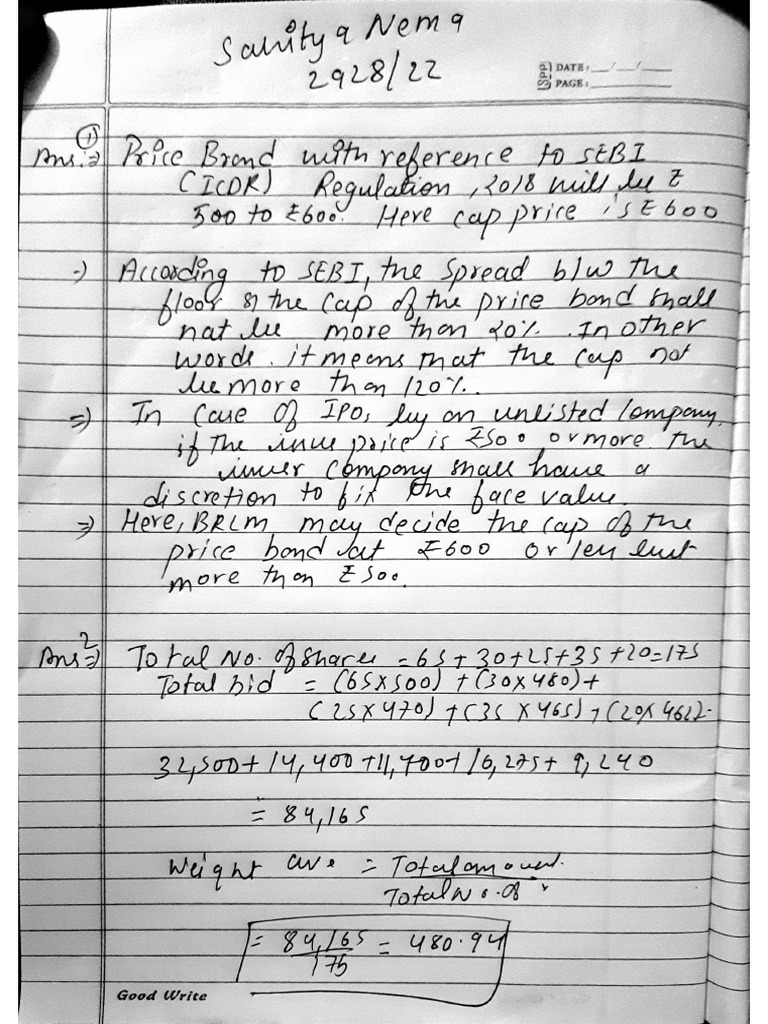 Sahitya Nema
2928/22
DATE: __/__/__
PAGE:
Ans.⇒ ① Price Brand with reference to SEBI
(ICDR) Regulation, 2018 will be ₹
500 to ₹600. Here cap price is ₹600
-) According to SEBI, the Spread b/w the
floor & the cap of the price band shall
nat be more than 20%. In other
words. it means that the cap not
be more than 120%.
⇒) In Case of IPO, by an unlisted Company,
if the issue price is ₹500 or more. the
issuer Company shall have a
discretion to fix the face value.
⇒) Here, BRLM may decide the cap of the
price band at ₹600 or less but
more than ₹500.
Ans 2⇒) Total No. of shares = 65+30+25+35+20=175
Total bid = (65X500) + (30X480)+
(25X470) + (35 X 465) + (20X 462)=
32,500+ 14,400 +11,700+ 16,275+ 9,240
= 84,165
Weight ave = Total amount.
Total No. of
= 84,165 = 480.94
175
Good Write